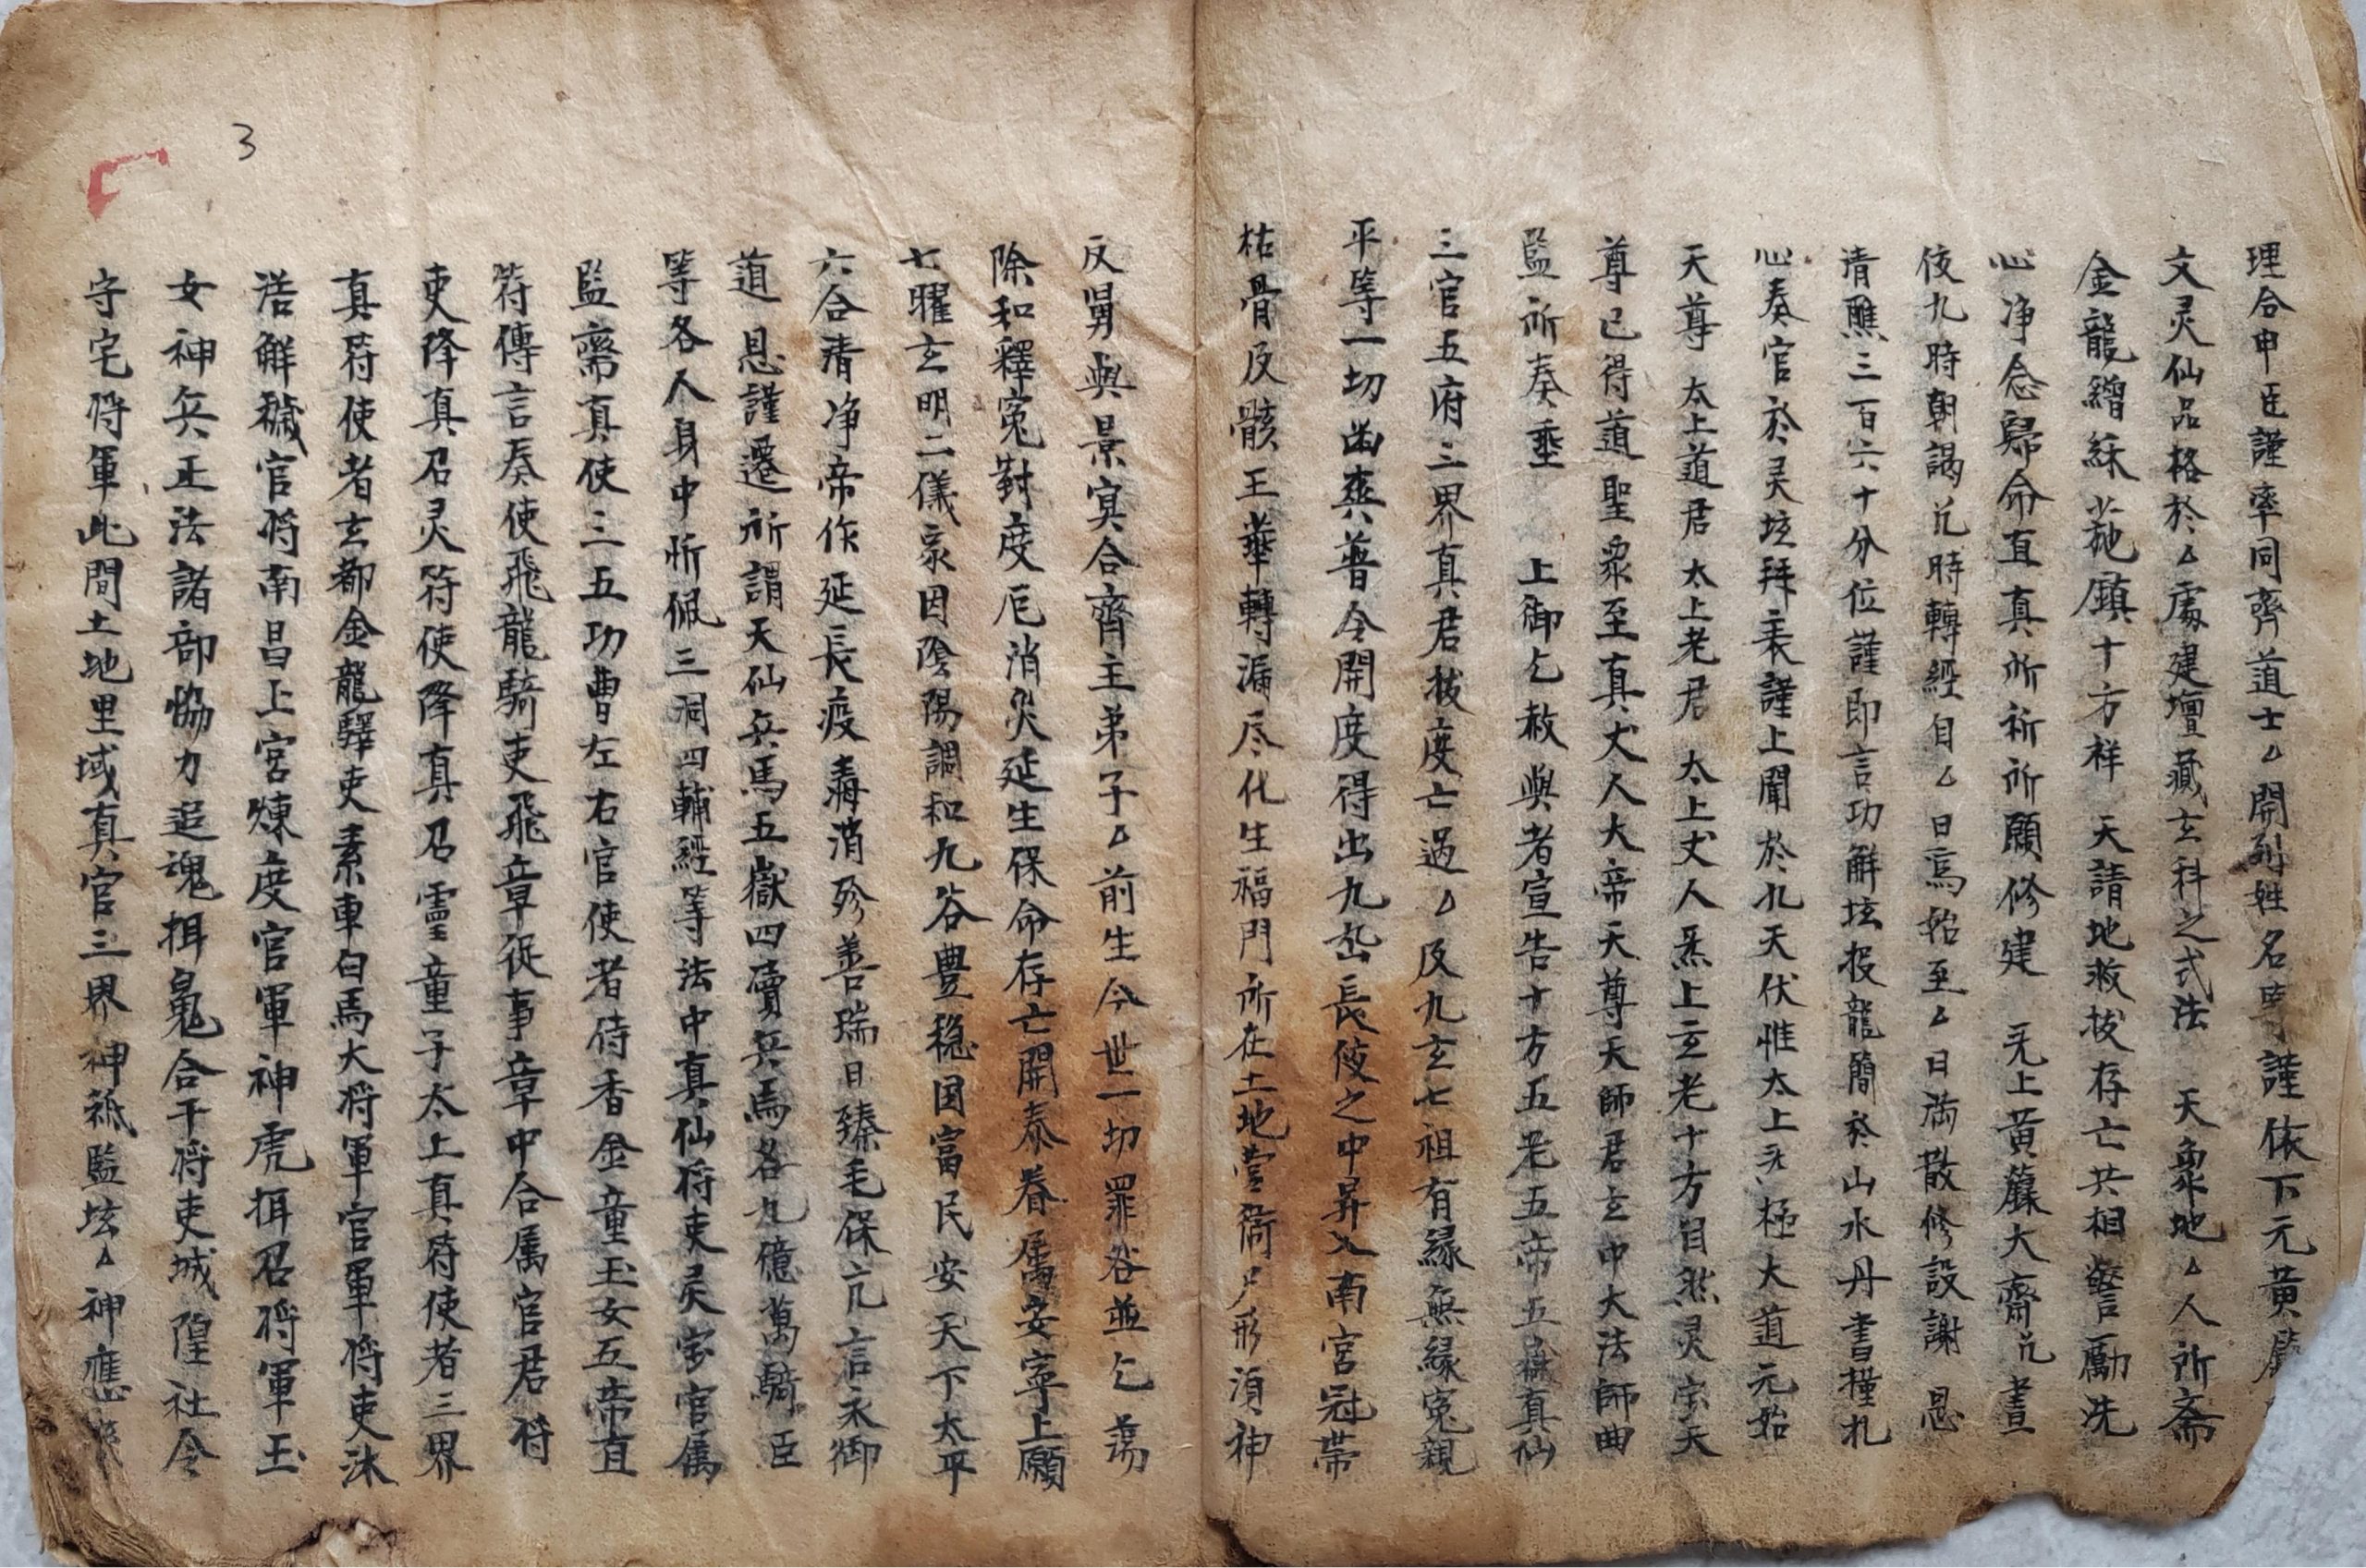 理合申臣謹率同齊道士△開列姓名專謹依下元黃籙
文灵仙品格於△處建壇藏玄科之式法 天象地△人所斎
金龍繒綵蔴願十方祥 天請地救拔存亡共相警勵洗
心净念歸命直真所祈所願修建 旡上黃籙大齋𠃊晝
伎九時朝謁𠃊時轉經自△日焉始至△日满散修設謝 恩
清醮三百六十分位謹即言功解坛投龍簡於山水丹書墥札
心奏官於灵坛拜表謹上聞於九天伏惟太上旡極大道元始
天尊 太上道君 太上老君 太上丈人炁上玄老十方自然灵宝天
尊已得道聖衆至真大人大帝天尊天師君玄中大法師曲
監所奏垂 上御乞赦與者宣告十方五老五帝五嶽真仙
三官五府三界真君拔度亡過△及九玄七祖有緣無緣冤親
平等一切幽爽普令開度得出九岳長伎之中昇入南宮冠带
枯骨反骸王華轉漏尽化生福門所在土地靈衛尸形湏神
反舅與景冥合齊主弟子△前生今世一切罪咎並乞蕩
除和釋冤對度厄消災延生保命存亡開泰眷属安寧上願
七曜玄明二儀家因陰陽調和九谷豊稳国富民安天下太平
六合清净帝作延長疫毒消殄善瑞日臻毛保亢言永御
道恩謹遷所謂天仙兵馬五嶽四瀆兵馬各九億萬騎臣
等各人身中所佩三洞四輔經等法中真仙将吏灵宝官属
監齋真使三五功曹左右官使者侍香金童玉女五帝直
符傳言奏使飛龍騎吏飛章從事章中合属官君将
吏降真召灵符使降真召靈童子太上真符使者三界
真符使者玄都金龍驛吏素車白馬大将軍官軍将吏沐
浩解穢官将南昌上宮煉度官軍神虎揖召将軍玉
女神兵正法諸部恊力追魂揖鬼合干将吏城隍社令
守宅将軍此間土地里域真官三界神祇監坛△神應
3